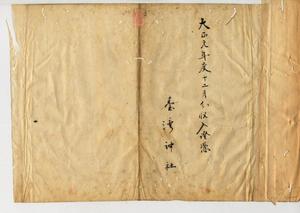 大正元年度十二月分収入證憑
臺湾神社